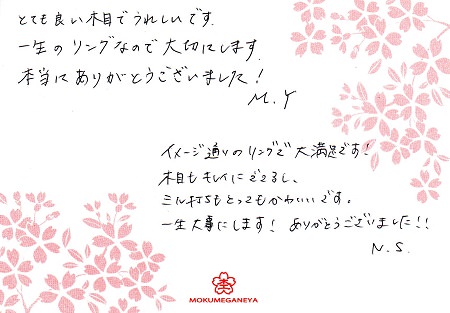 とても良い木目でうれしいです。
一生のリングなので大切にします。
本当にありがとうございました!
M.Y
イメージ通りのリングで大満足です!
木目もキレイにでてるし、
ミル打ちもとってもかわいいです。
一生大事にします! ありがとうございました!!
N.S.
MOKUMEGANEYA